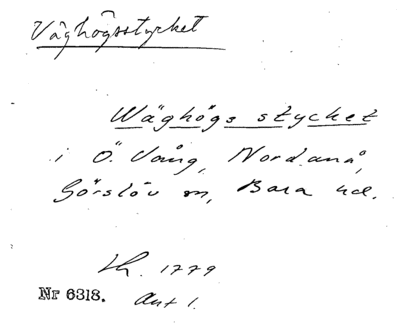 Väghögsstycket
Wäghögs stycket
i Ö. Vång, Nordanå,
Görslöv sn, Bara hd.
Lh. 1779
Nr 6318. Akt 1.